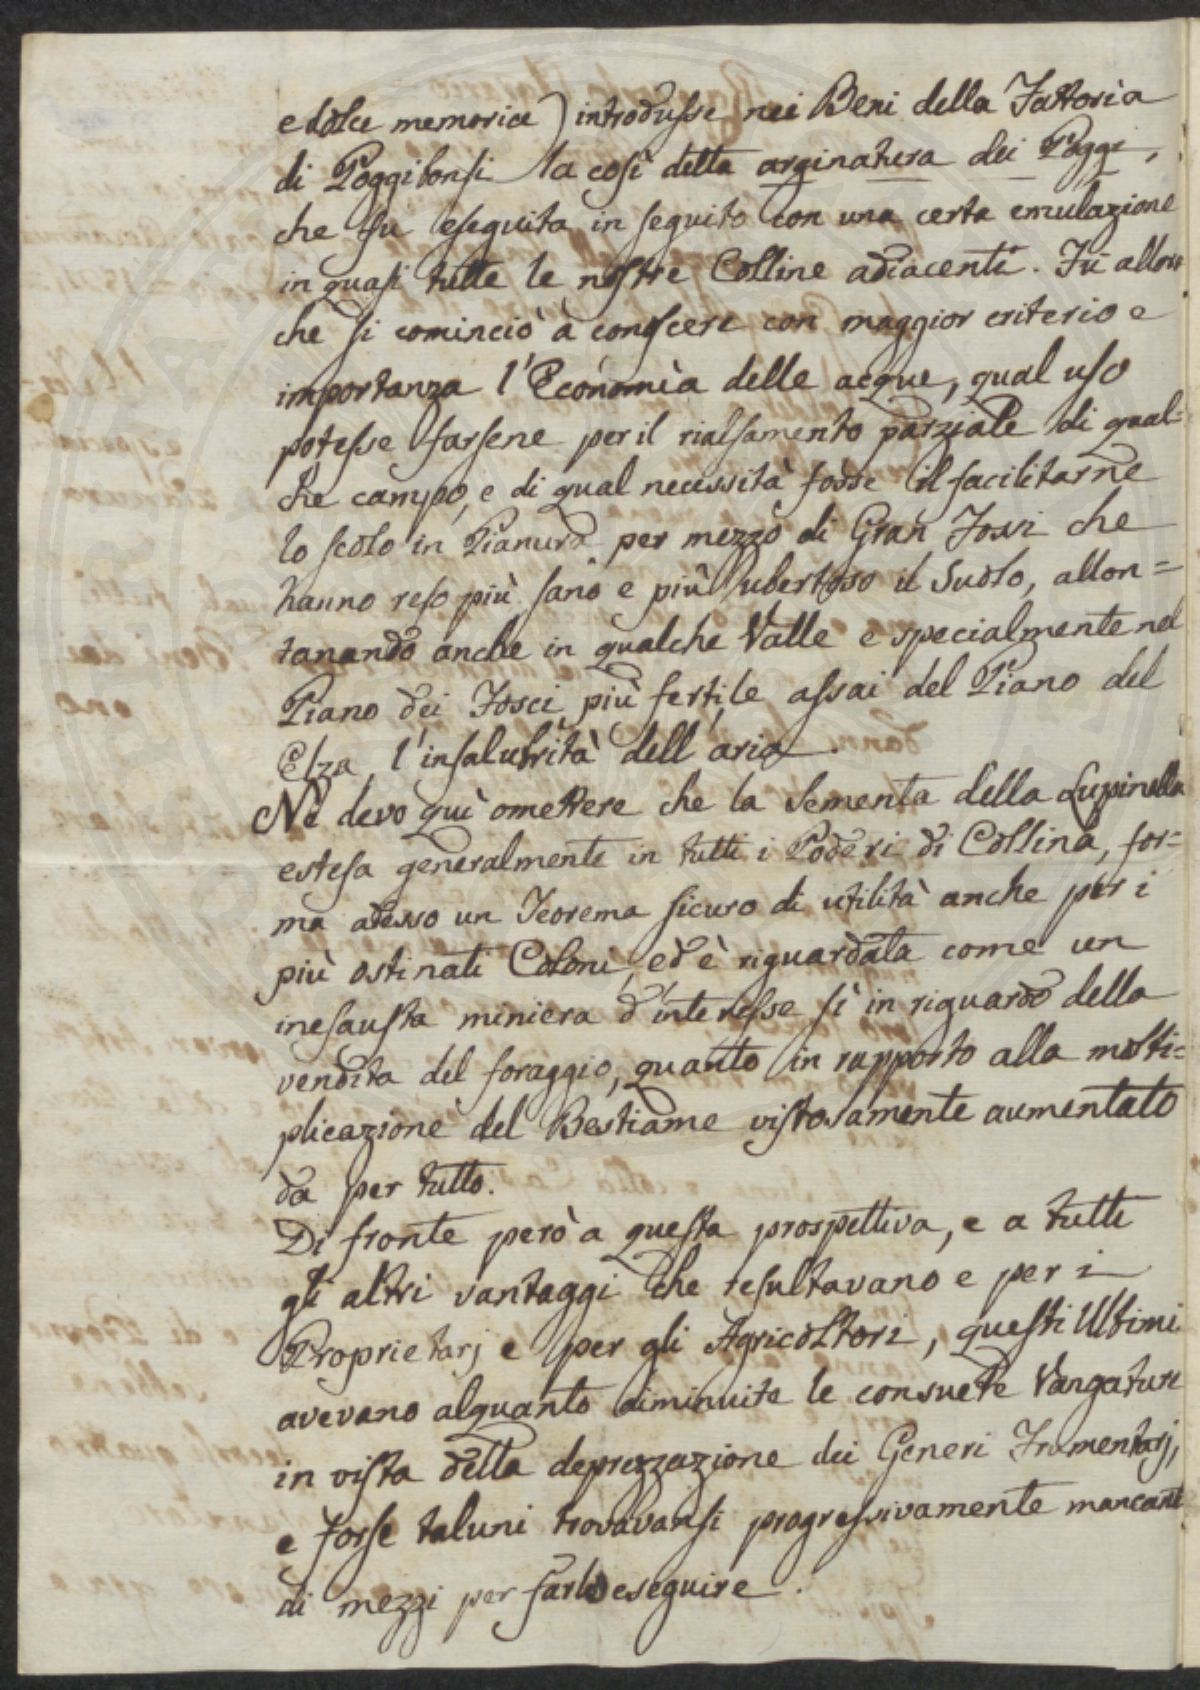 e dolce memoria) introdusse nei Beni della Fattoria
di Poggibonsi la così detta arginatura dei Poggi,
che fu eseguita in seguito con una certa emulazione
in quasi tutte le nostre Colline adiacenti. Fù allora
che si cominciò à conoscere con maggior criterio e
importanza l'Economìa delle acque, qual uso
potesse farsene per il rialsamento parziale di qual-
che campo, e di qual necessità fosse il facilitarne
lo scolo in Pianura per mezzo di Gran Fossi che
hanno reso più sano e più ubertoso il Suolo, allon=
tanando anche in qualche Valle e specialmente nel
Piano dei Fosci più fertile assai del Piano del
Elza, l'insalubrità dell'aria.
Nè devo quì omettere che la Sementa della Lupinella
estesa generalmente in tutti i Poderi di Collina, for=
ma adesso un Teorema sicuro di utilità anche per i
più ostinati Coloni, ed è riguardata come un
inesausta miniera d'interesse sì in riguardo della
vendita del foraggio, quanto in rapporto alla molti=
plicazione del Bestiame vistosamente aumentato
da per tutto.
Di fronte però a questa prospettiva, e a tutti
gli altri vantaggi che resultavano e per i
Proprietarj e per gli Agricoltori, questi Ultimi
avevano alquanto diminuite le consuete Vangature
in vista della deprezzazione dei Generi Frumentarj,
e forse taluni trovavansi progressivamente mancanti
di mezzi per farle eseguire.